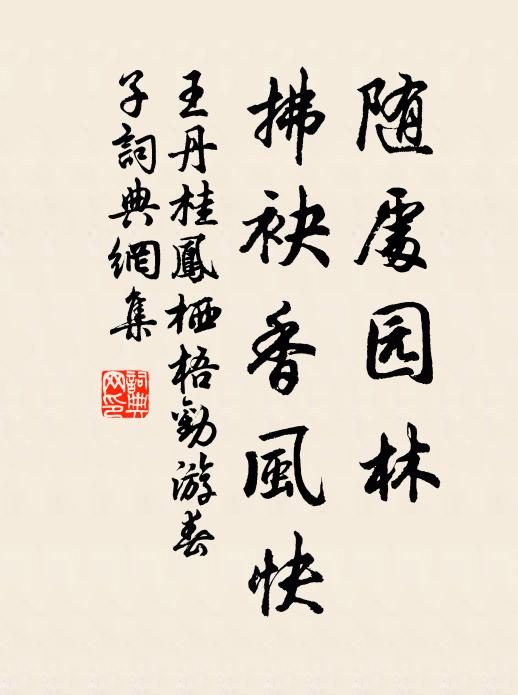 随處园林
拂袂香風快
王丹桂鳳栖梧勸游春
子詞典網集
詞典網印